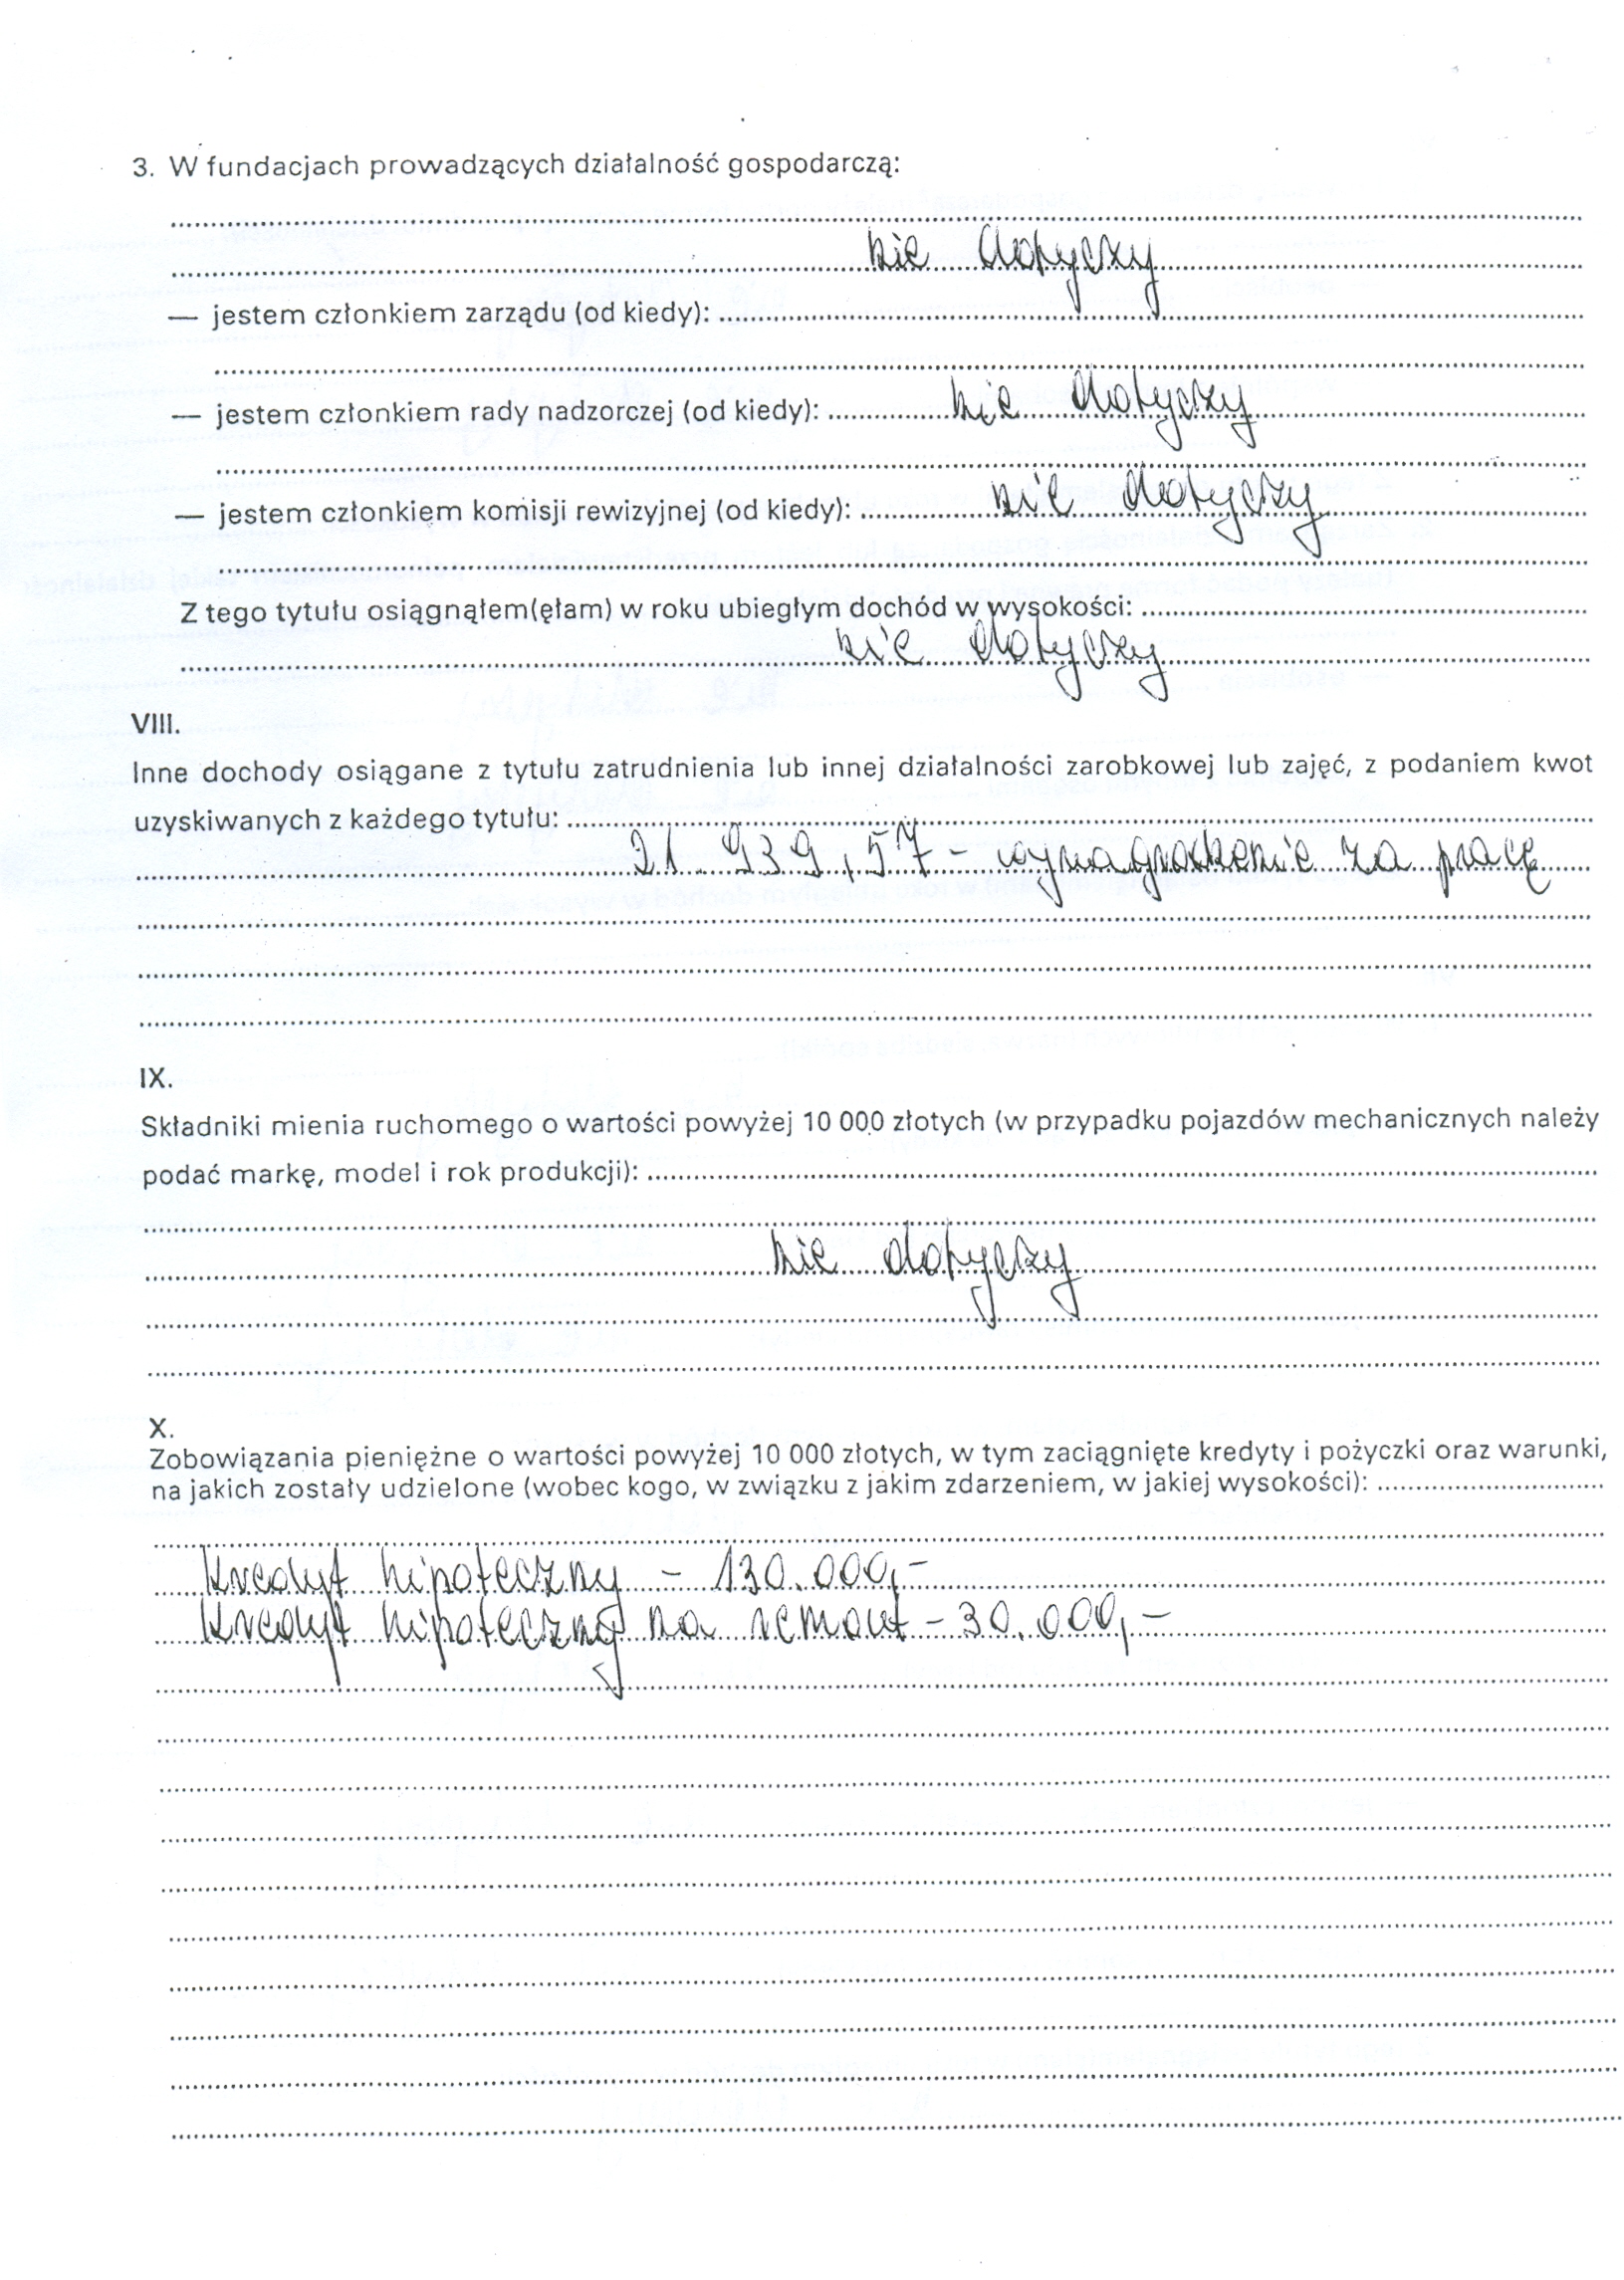 3. W fundacjach prowadzących działalność gospodarczą:
nie dotyczy
— jestem członkiem zarządu (od kiedy):
— jestem członkiem rady nadzorczej (od kiedy): nie dotyczy
— jestem członkiem komisji rewizyjnej (od kiedy): nie dotyczy
Z tego tytułu osiągnąłem(ęłam) w roku ubiegłym dochód w wysokości:
nie dotyczy
VIII.
Inne dochody osiągane z tytułu zatrudnienia lub innej działalności zarobkowej lub zajęć, z podaniem kwot
uzyskiwanych z każdego tytułu:
21 939,57 - wynagrodzenie za pracę
IX.
Składniki mienia ruchomego o wartości powyżej 10 000 złotych (w przypadku pojazdów mechanicznych należy
podać markę, model i rok produkcji):
nie dotyczy
X.
Zobowiązania pieniężne o wartości powyżej 10 000 złotych, w tym zaciągnięte kredyty i pożyczki oraz warunki,
na jakich zostały udzielone (wobec kogo, w związku z jakim zdarzeniem, w jakiej wysokości):
Kredyt hipoteczny - 130.000,-
Kredyt hipoteczny na remont - 30.000,-